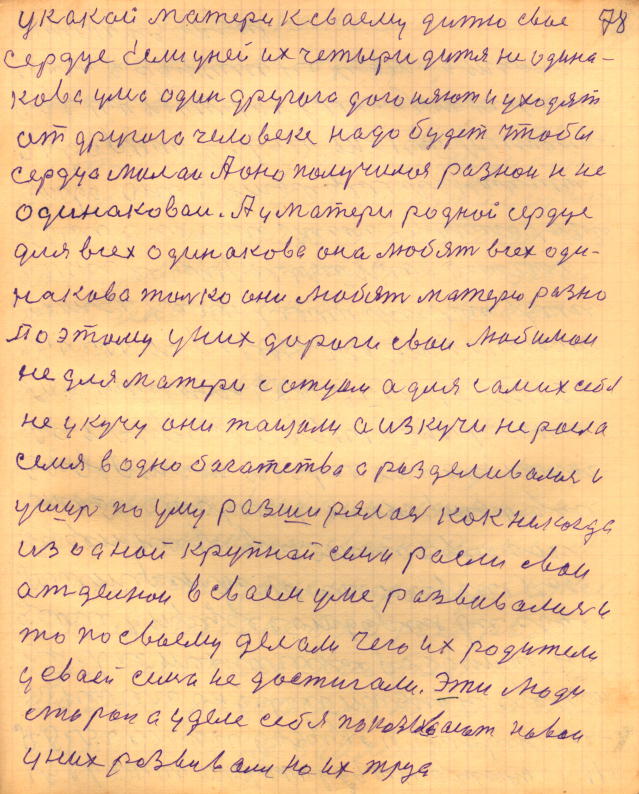 78
у какой матери к сваему дитю свае
сердце Если уней их четыри дитя не одина-
кова ума один другога догоняют и уходят
от другога человеке надо будет чтобы
сердца милаи А оно получился разнои и не
одинаковаи. А у матери родной сердце
для всех одинакова она любят всех оди-
накова толко они любят матерю разно
По этому у них дороги сваи любимаи
не для матери с отцом а для самих себя
не у кучу они тащали а из кучи не расла
семя водно багатства а разделивалая и
ушир по уму разширялая как некогда
из одной крупнай семи расли сваи
атделнои в сваем уме развивалия и
то по сваему делали чего их родители
у сваей семи не достигали. Эти люди
старон а у деле себя показвают новаи
у них развивали на их труд